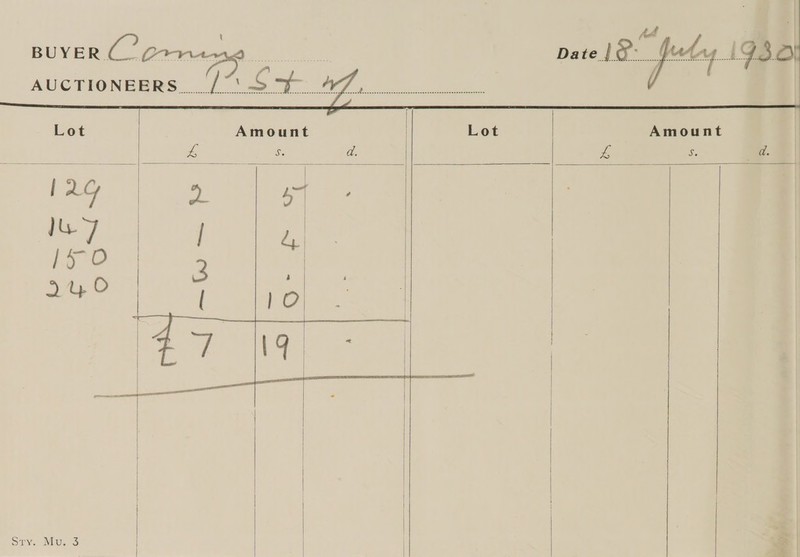 BUYER Comins Date 18th July 1930
AUCTIONEERS P. S +
Lot Amount Lot Amount
£ s. d. £ s. d.
129 2 5 .
147 1 4 .
150 3 . .
240 1 10 .
£7 19 .
Sty. Mu. 3